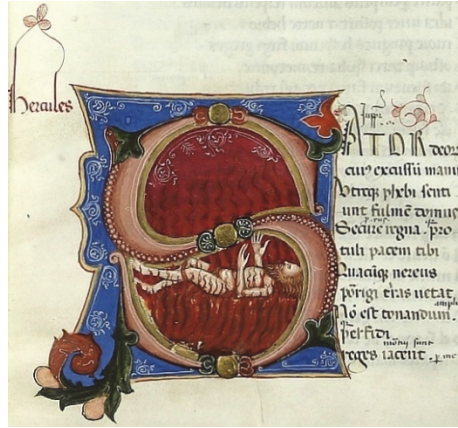 hercules
SATOR deor
cui⁹ excussū manu
Vtreq; phebi senti
unt fulmē domus
Secure regna . pro
tuli pacem tibi
Quacūq; nereus
porrigi t̄ras uetat
Nō est tonandum.
perfidi
reges iacent.